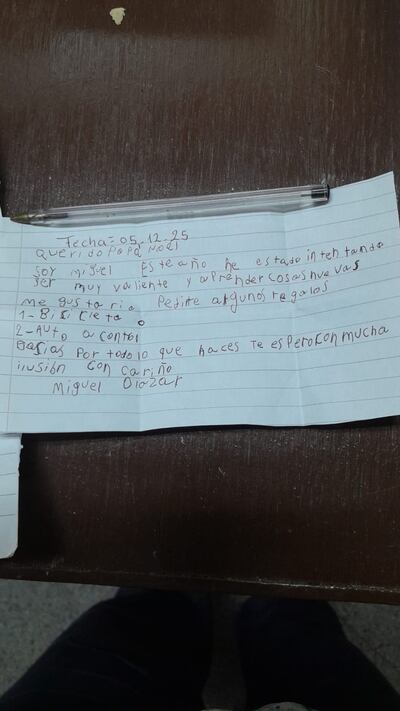 Fecha= 05.12.25
Querido Papa Noel
soy miguel Este año he estado intentando
ser muy valiente y aprender cosas nuevas
me gustaria Pedirte algunos regalos
1- Bisicleta o
2- Auto a control
Gasias Por todo lo que haces Te espero con mucha
ilusión con cariño
Miguel Diazar